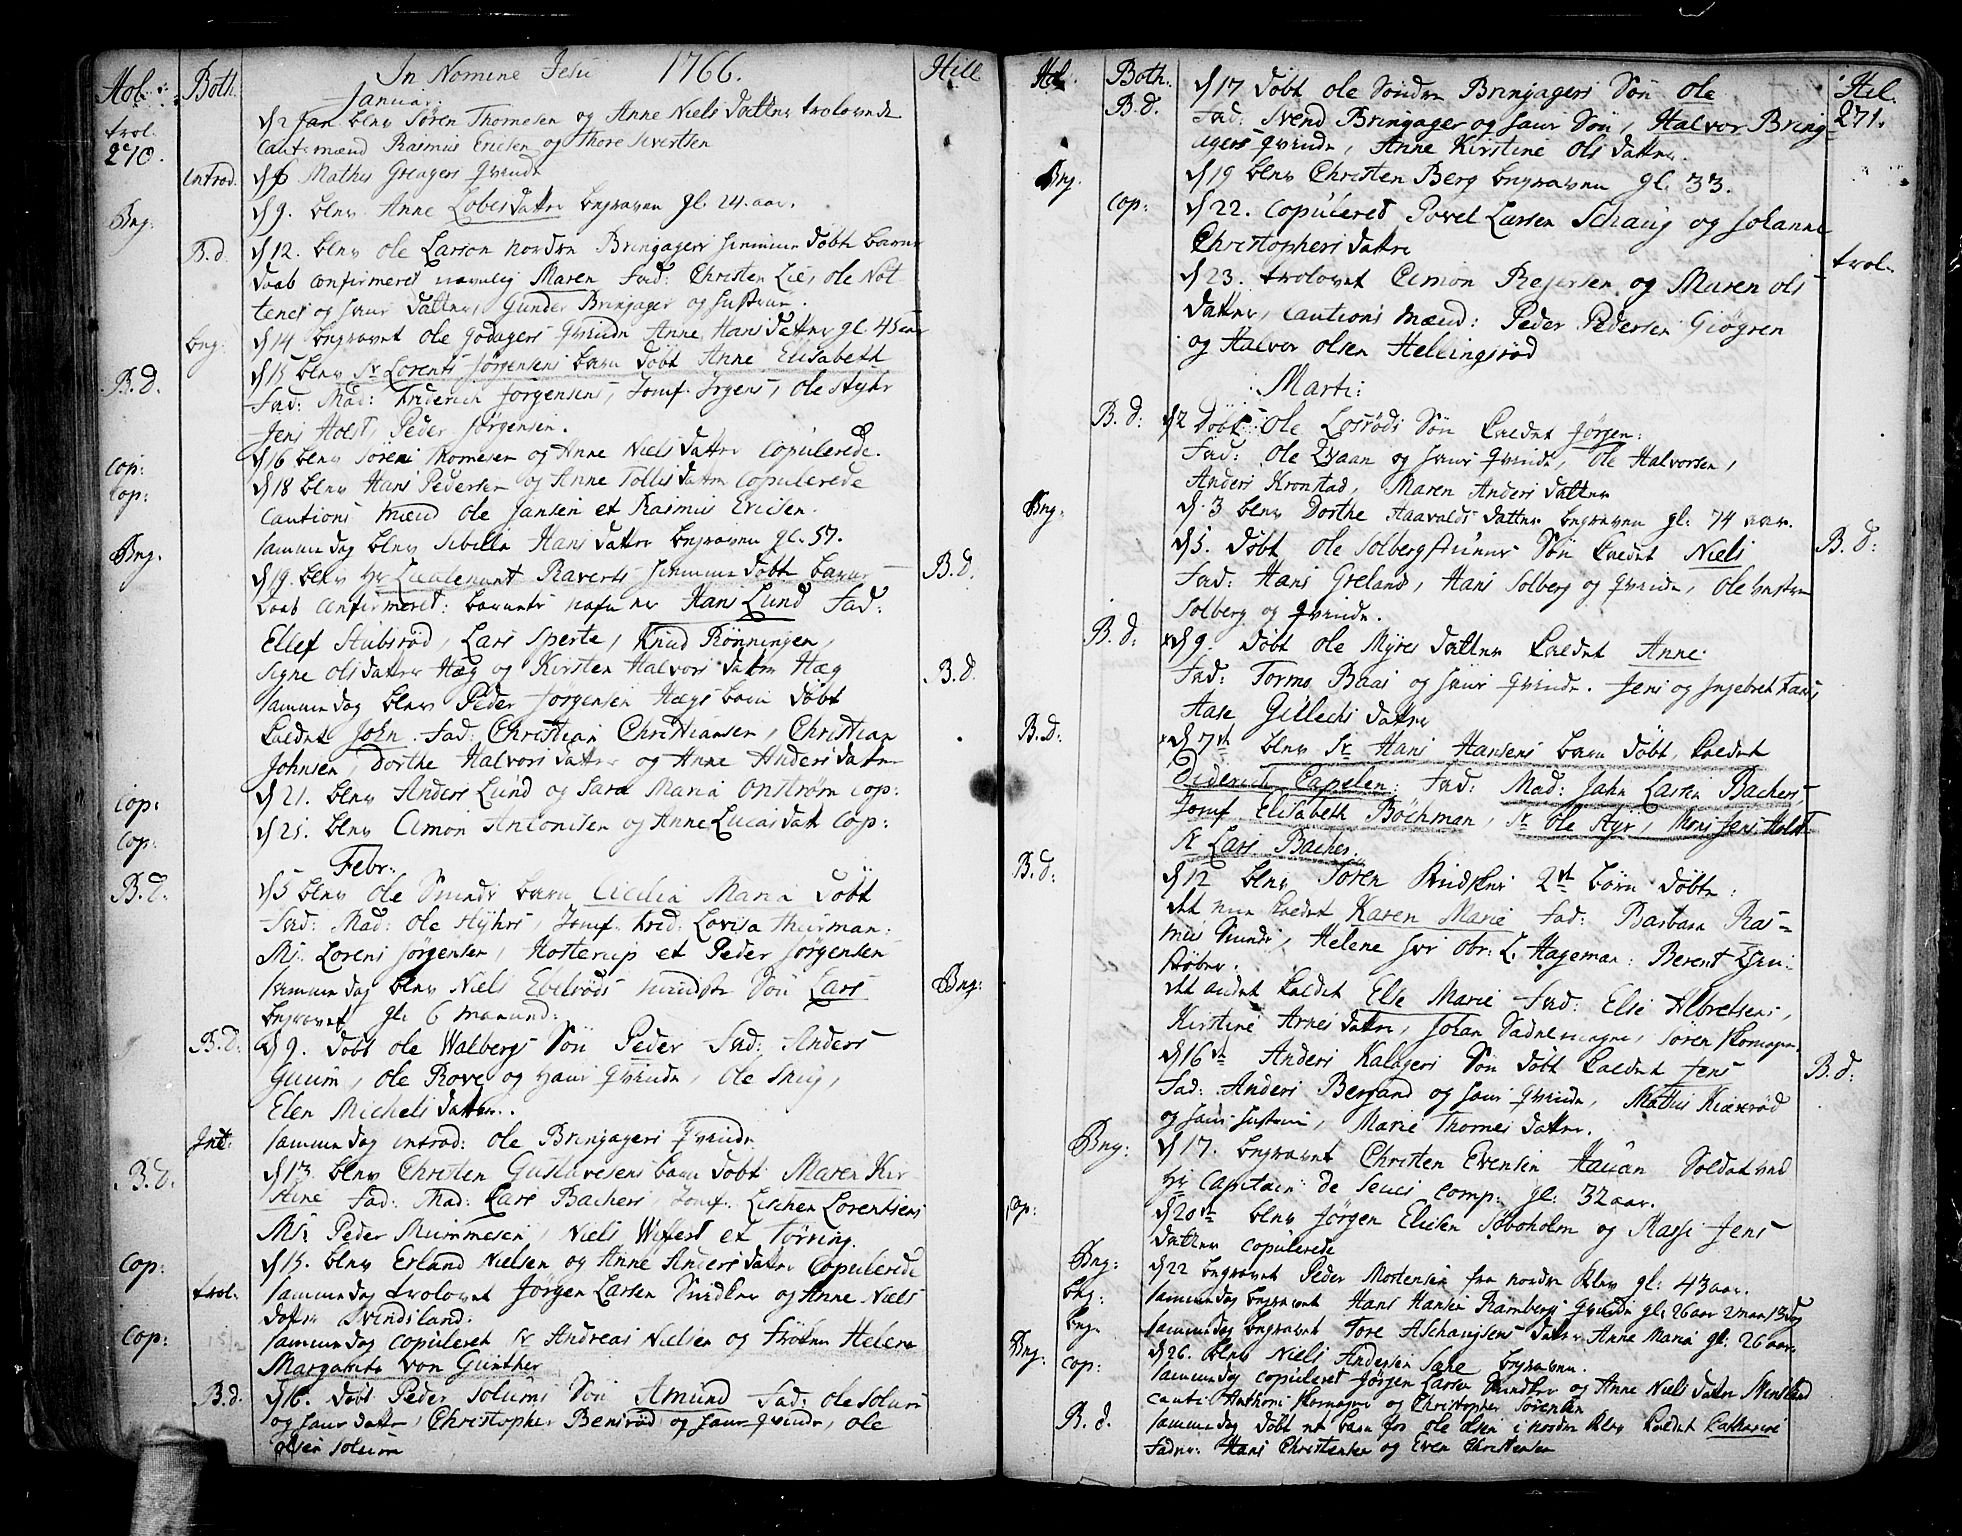 Hol: Both. In Nomine Jesu 1766. Hill
Januar:
trol. d 2 Jan. blev Søren Thomesen og Anne Niels datter trolovede
270. Caut: mænd Rasmus Ericsen og Thore Sivertsen
introd. d 6 Mathis Grengers Qvinde
Beg: d 9. blev Anne Lobes datter begraven gl. 24 aar.
B.d. d 12. blev Ole Larson nordre Bringagers hiemme døbte barns
daab confirmeret navnlig Maren Fad: Christen Lie, Ole Not-
tenes og hans datter, Gunder Bringager og Hustrue.
beg: d 14 begravet Ole Godagers Qvinde Anne Hans datter gl. 45 aar
B.d. d 15 blev Sr Lorents Jørgensens barn døbt Anne Elisabeth
Fad: Mad: Friderich Jørgensens, Jomf. Irgens, Ole Styhr
Jens Holst, Peder Jørgensen.
Cop: d 16 blev Søren Thomesen og Anne Niels datter Copulerede.
Cop: d 18 blev Hans Pedersen og Anne Tollis datter copulerede
Cautions Mænd Ole Jansen et Rasmus Ericsen.
Beg: samme dag blev Sibilla Hans datter begraven gl. 57.
d 19. blev Hr Lieutenant Raverts hiemme døbte barns B.d.
daab confirmeret: barnets nafn er Hans Lund Fad:
Ellef Stubsrød, Lars Sperte, Knud Rönningen,
Signe Ols datter Hæg og Kirsten Halvors datter Hæg
samme dag blev Peder Jørgensen Hægs barn døbt B.d.
kaldet John. Fad: Christian Christiansen, Christian
Johnsen, Dorthe Halvors datter og Anne Anders datter
Cop: d 21. blev Anders Lund og Sara Maria Onström cop:
Cop: d 25. blev Simon Antonisen og Anne Lucas datt Cop:
Febr:
B.d. d 5 blev Ole Smeds barn Cicilia Maria døbt
Fad: Mad: Ole Styhrs, Jomf. Frid: Lovisa Thurman:
Ms. Lorens Jørgensen, Hosterup et Peder Jørgensen
samme dag blev Niels Evelrøds mindste Søn Lars Beg:
begravet gl: 6 maaned:
B.d. d 9. døbt Ole Walbergs Søn Peder Fad: Anders
Guum, Ole Rove og Hans Qvinde, Ole Snug,
Elen Michels datter.
Int: samme dag introd: Ole Bringagers Qvinde
B.d. d 13. blev Christen Gustavesens barn døbt Maren Kir-
stine Fad: Mad: Lars Bachers, Jomf. Lischen Lorentsens
Ms: Peder Mummesen, Niels Wiffert et Törring.
Cop: d 15. blev Erland Nielsen og Anne Anders datter Copulerede
trol. samme dag trolovet Jørgen Larsen Smidker og Anne Niels
datter Svendsland.
Cop: samme dag copuleret Sr Andreas Nielsen og Frøken Helene
Margareta von Günther
B.d. d 16. døbt Peder Solums Søn Amund Fad: Ole Solum
og hans datter, Christopher Bensrød og hans Qvinde, Ole
Olsen Solum
Hol. Both. d 17 døbt Ole Söndre Bringagers Søn Ole Hil.
B.d. Fad: Svend Bringager og hans Søn, Halvor Bring- 271.
agers Qvinde, Anne Kirstine Ols datter.
Beg. d 19 blev Christen Berg begraven gl. 33.
Cop: d 22. copuleret Povel Larsen Schaug og Johanne
Christophers datter
d 23. trolovet Simon Rejersen og Maren Ols trol.
datter, Cautions Mænd: Peder Pedersen Giögren
og Halvor Olsen Hellingsrød
Marti:
B.d: d 2 Döbt Ole Losrøds Søn kaldet Jørgen:
Fad: Ole Waan og hans Qvinde, Ole Halvorsen,
Anders Kronstad, Maren Anders datter
Beg: d. 3 blev Dorthe Haavalds datter begraven gl: 74 aar.
d 5. döbt Ole Solbergstuens Søn kaldet Niels B.d:
Fad: Hans Greland, Hans Solberg og Qvinde, Ole vestre
Solberg og Qvinde.
B.d: d 9. døbt Ole Myres datter kaldet Anne
Fad: Tormo Baas og hans Qvinde. Jens og Ingebret
Aase Gullichs datter
B.d: d 7de blev Sr Hans Hansens barn döbt kaldet
Diderich Capelen: Fad: Mad: Jahn Larsen Bachers,
Jomf Elisabeth Böchman, Sr Ole Styr, Mons: Jens Holst
Sr Lars Bacher.
B.d: d 12 blev Søren 2de börn döbte:
det ene kaldet Karen Marie Fad: Barbara Ras-
mus Smeds, Helene hos Obr: L. Hageman: Berent
støber.
det andet kaldet Else Marie Fad: Else Albretsens,
Kirstine Arnes datter, Johan Sadnemager, Søren Skomager
d 16de Anders Kalagers Søn døbt kaldet Jens B.d:
Fad: Anders Bergand og hans Qvinde, Mathis Kiærrød
og hans Hustrue, Marie Thomes datter.
Beg: d 17. begravet Christen Evensen Hauan Soldat ved
Hr Capitain de Seues Comp: gl: 32 aar.
Cop: d 20de blev Jørgen Elisen Søboholm og Masse Jens
datter copulerede
Beg: d 22 begravet Peder Mortensen fra nordre Klev gl: 43 aar.
beg: samme dag begravet Hans Hansen Rambergs Qvinde gl: 26 aar 2 maan 13 dag
beg. samme dag begravet Tore Aschaugsens datter Anne Maria gl: 26 aar
Beg: d 26. blev Niels Andersen Sane begraven.
cop: samme dag copuleret Jørgen Larsen Smidker og Anne Niels datter Svensland
cauti: Anthoni Skomager og Christopher Sørensen
B.d. samme dag döbt et barn for Ole Olsen i nordre Klev kaldet Catharine
Fadre: Hans Christensen og Even Christensen